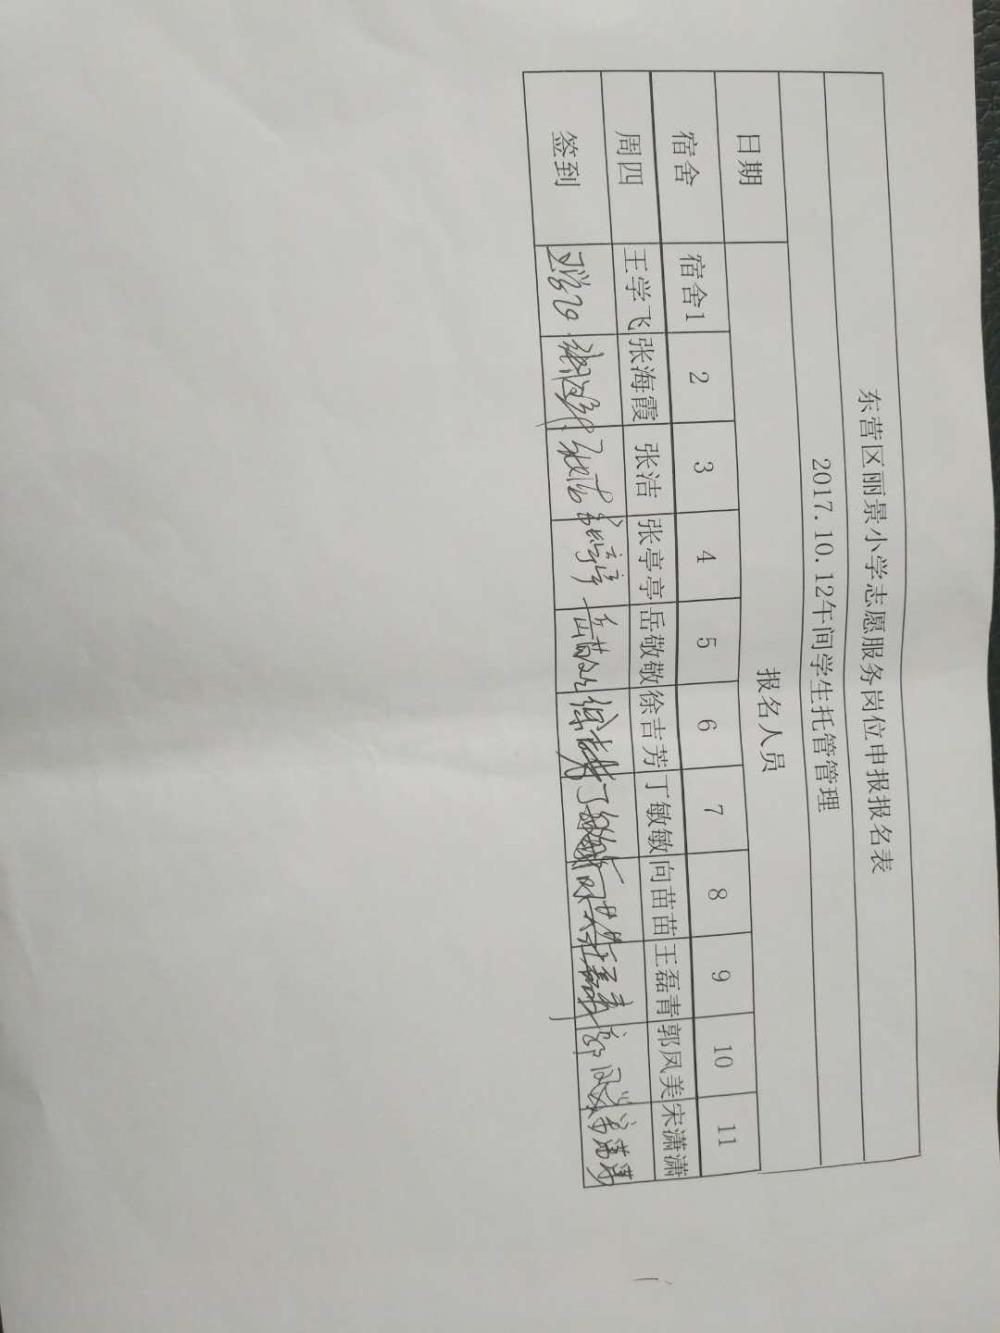 东营区丽景小学志愿服务岗位申报报名表
2017.10.12午间学生托管管理
日期 报名人员
宿舍 宿舍1 2 3 4 5 6 7 8 9 10 11
周四 王学飞 张海霞 张洁 张亭亭 岳敬敬 徐吉芳 丁敏敏 向苗苗 王磊青 郭凤美 宋潇潇
签到 王学飞 张海霞 张洁 张亭亭 岳敬敬 徐吉芳 丁敏敏 向苗苗 王磊青 郭凤美 宋潇潇